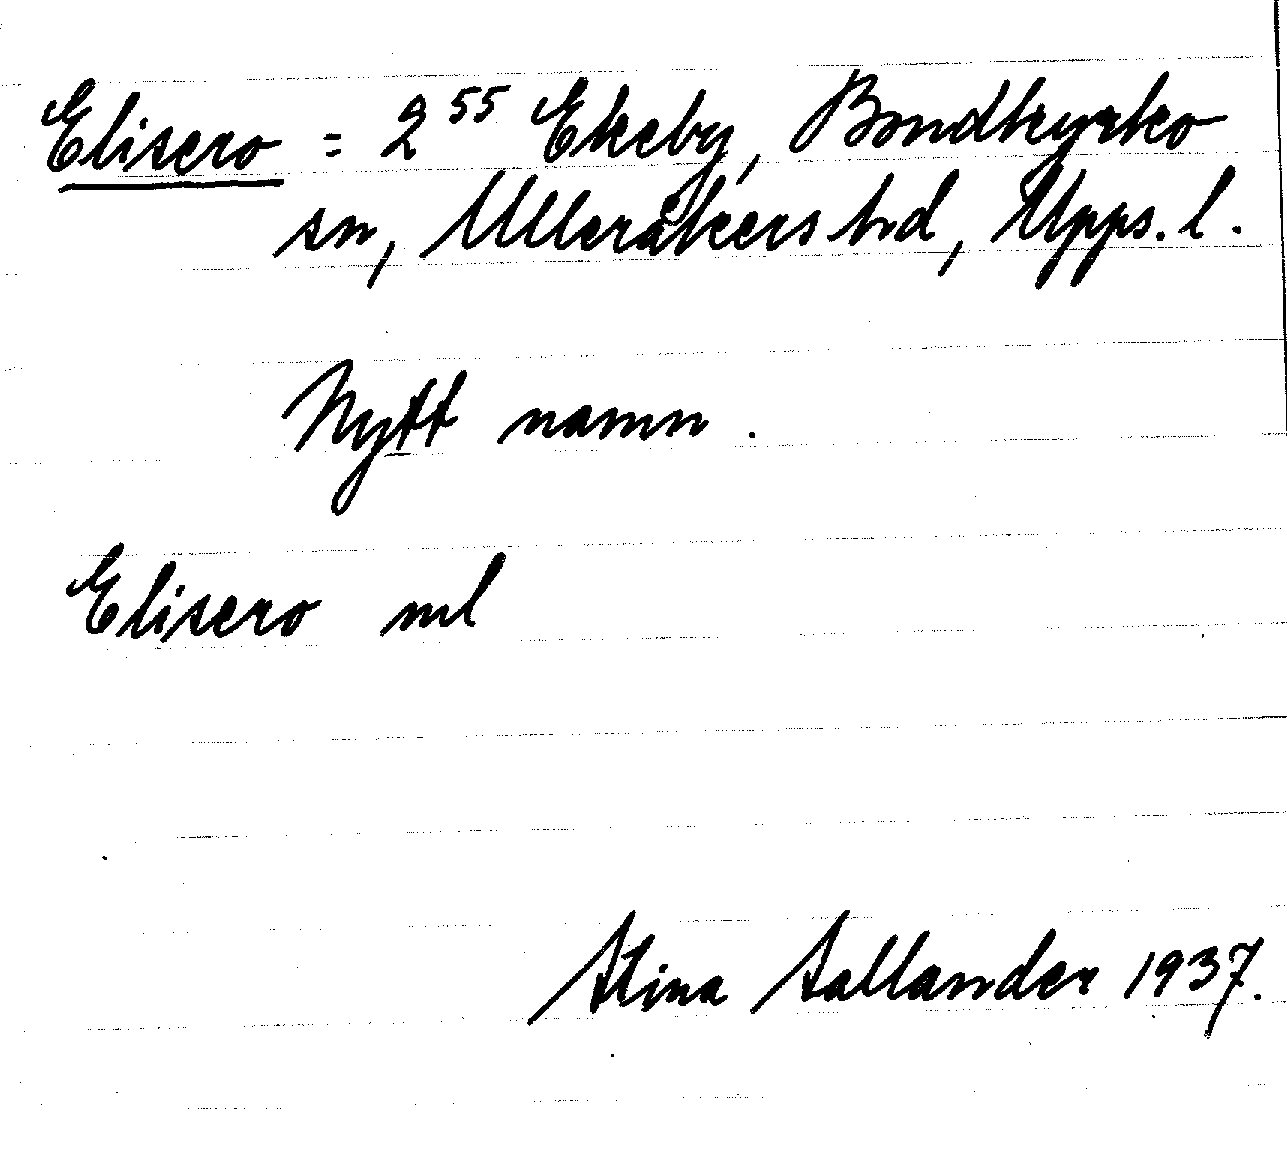 Elisero = 2⁵⁵ Ekeby, Bondkyrko
sn, Ulleråkers hd, Upps. l.
Nytt namn.
Elisero ml
Stina Sallander 1937.